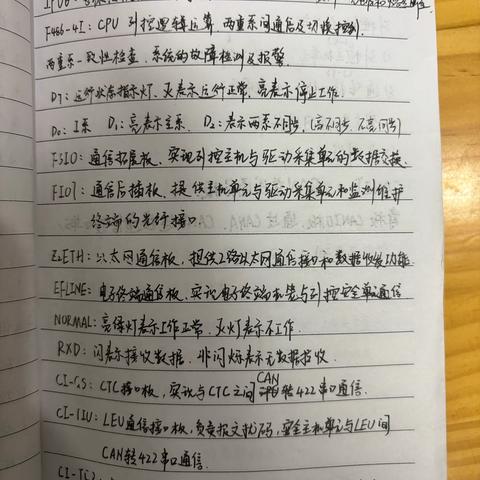 F486-4I: CPU 列控逻辑运算, 两重系间通信及切换控制,
两重系一致性检查、系统的故障检测及报警.
D7: 运行状态指示灯. 灭表示运行正常, 亮表示停止工作.
D0: I系 D1: 亮表示主系. D2: 表示两系不同步. (亮不同步 不亮同步)
FSIO: 通信拓展板, 实现列控主机与驱动采集单元的数据交换.
FIO7: 通信后插板, 提供主机单元与驱动采集单元和监测维护
终端的光纤接口
Z2ETH: 以太网通信板, 提供2路以太网通信接口和数据收发功能
EFLINE: 电子终端通信板, 实现电子终端机笼与列控安全单通信
NORMAL: 亮绿灯表示工作正常, 灭灯表示不工作.
RXD: 闪表示接收数据. 非闪烁表示无数据接收.
CI-GS: CTC接口板, 实现与CTC之间CAN转422串口通信.
CI-IIU: LEU通信接口板, 负责报文扰码, 安全主机单元与LEU间
CAN转422串口通信.